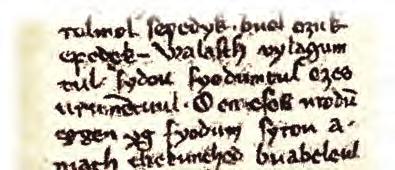 rolmol sepedyk. buol ozuk
epedek Walasth vylagum
tul sydou fyodumtul ezes
urumētuul. O en eses urodū
eggen yg fyodum syrou a
niath thekunched buabeleul